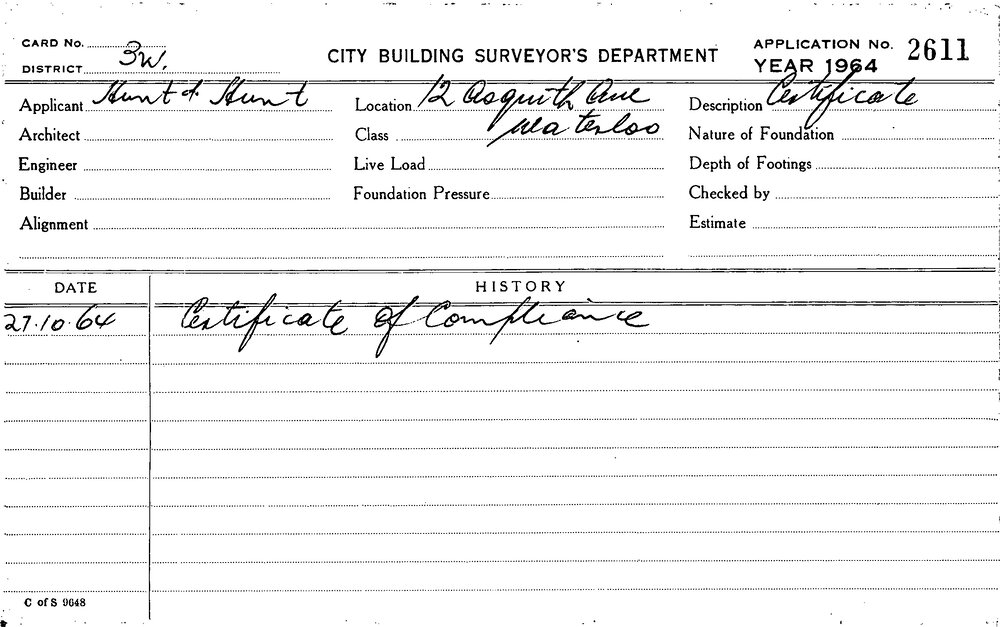 CARD No. 3W.
DISTRICT
CITY BUILDING SURVEYOR'S DEPARTMENT
APPLICATION No. 2611
YEAR 1964
Applicant Hunt & Hunt Location 12 Asquith Ave Description Certificate
Architect Class Waterloo Nature of Foundation
Engineer Live Load Depth of Footings
Builder Foundation Pressure Checked by
Alignment Estimate
DATE HISTORY
27.10.64 Certificate of Compliance
C of S 9648